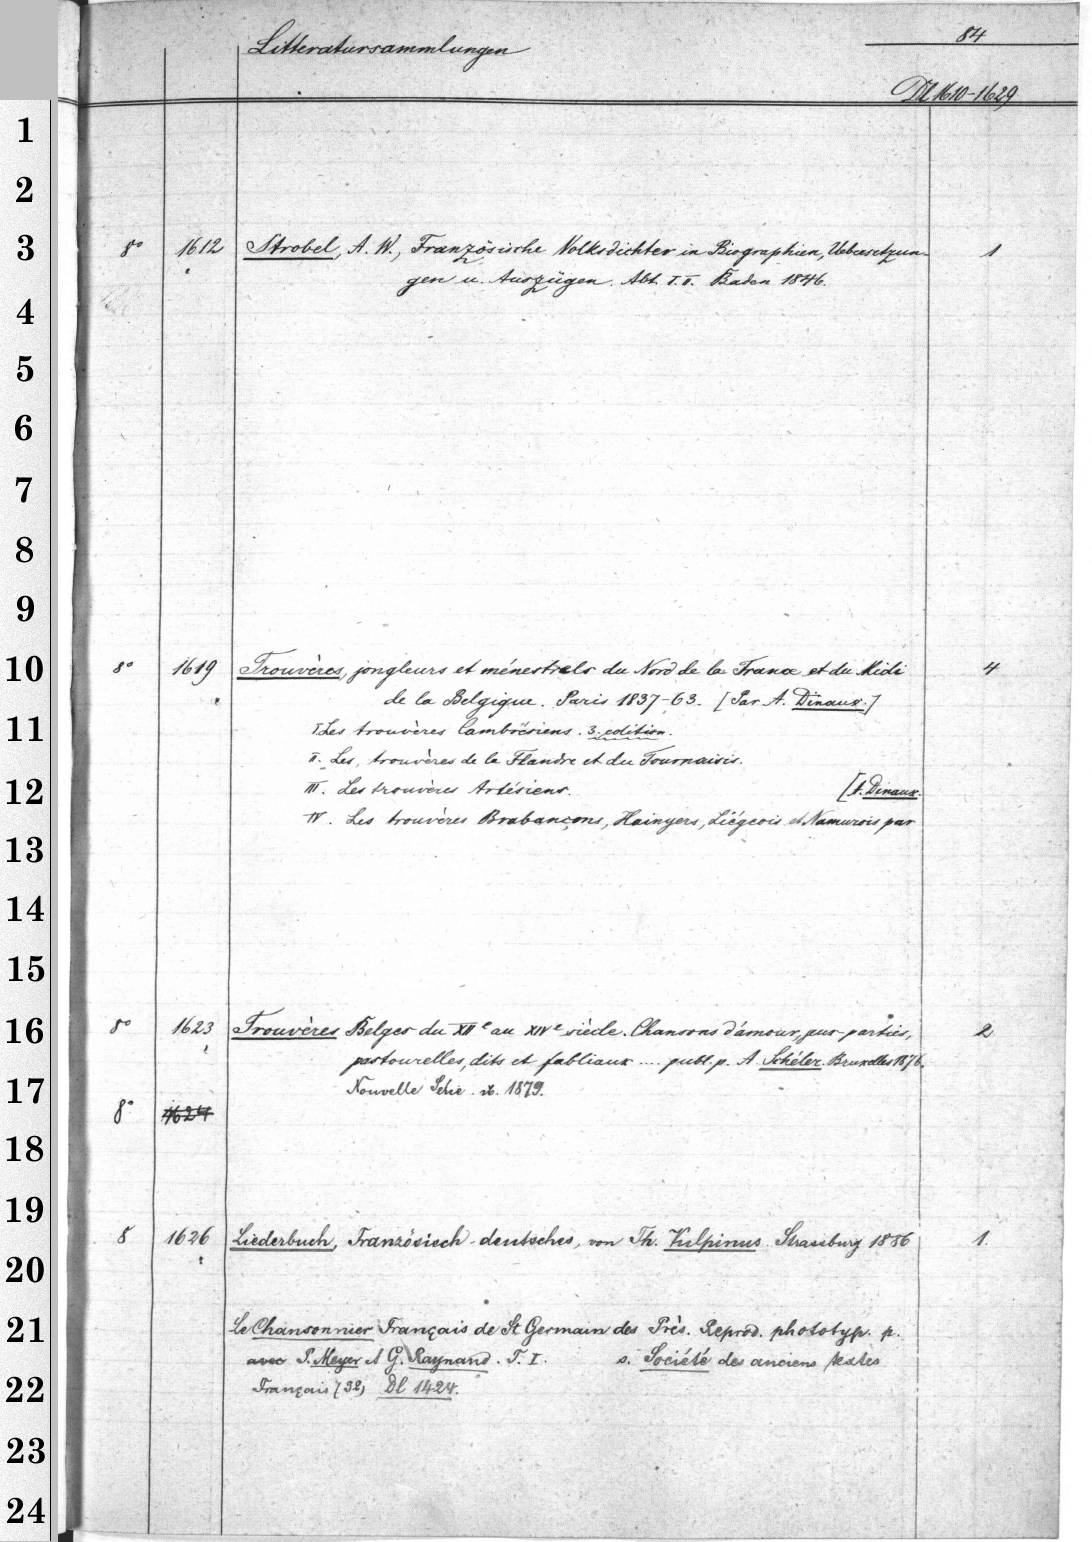 Litteratursammlungen 84
Dl 1610-1629
1
2
3 8° 1612 Strobel, A. W., Französische Volksdichter in Biographien, Uebersetzun- 1
gen u. Auszügen. Abt. I. II. Baden 1846.
4
5
6
7
8
9
10 8° 1619 Trouvères, jongleurs et ménestrels du Nord de la France et du Midi 4
de la Belgique. Paris 1837-63. [Par A. Dinaux.]
11 I. Les trouvères Cambrésiens. 3. edition.
II. Les trouvères de la Flandre et du Tournaisis.
12 III. Les trouvères Artésiens. [A. Dinaux.
IV. Les trouvères Brabançons, Hainyers, Liégeois et Namurois par
13
14
15
16 8° 1623 Trouvères Belges du XIIe au XIVe siècle. Chansons d'amour, jeux-partis, 2
pastourelles, dits et fabliaux .... publ. p. A. Schéler. Bruxelles 1876.
17 Nouvelle Série. ib. 1879.
8° 1624
18
19 8 1626 Liederbuch, Französisch-deutsches, von Th. Vulpinus. Strassburg 1886 1.
20
21 Le Chansonnier Français de St Germain des Près. Reprod. phototyp. p.
avec P. Meyer et G. Raynaud. T. I. s. Société des anciens textes
22 Français (32) Dl 1424.
23
24